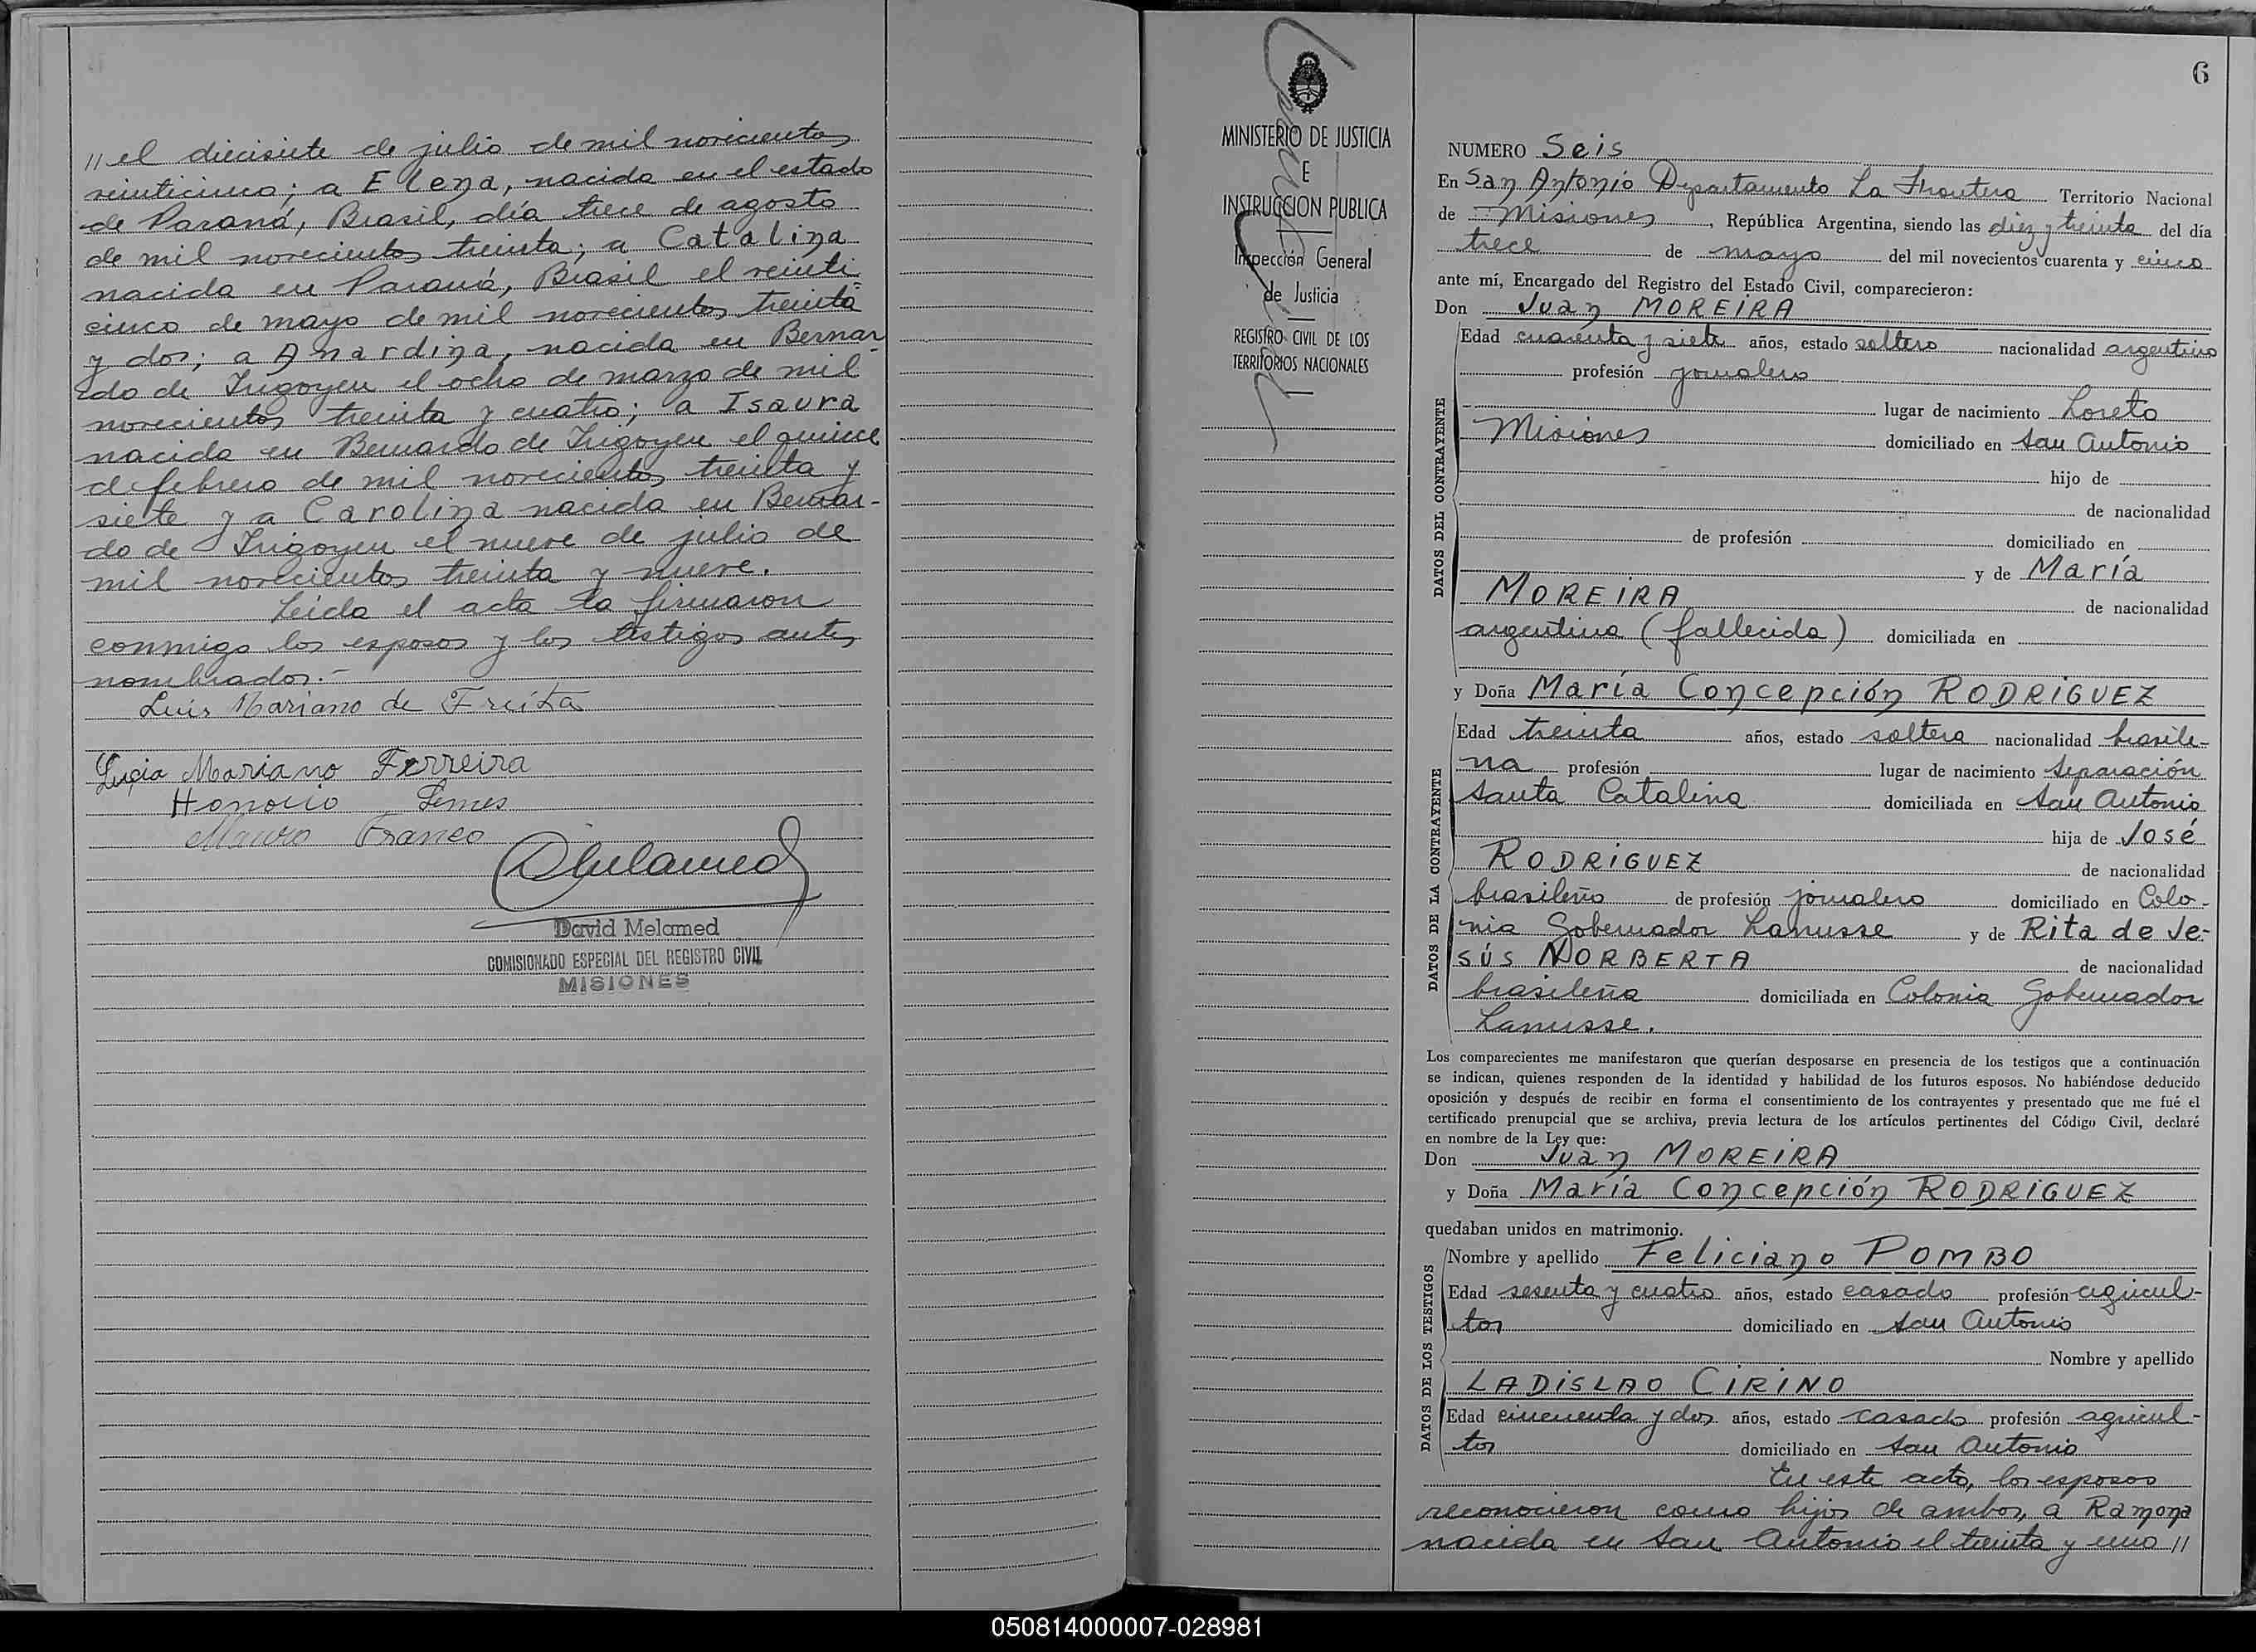 // el diecisiete de julio de mil novecientos
veinticinco; a Elena, nacida en el estado
de Paraná, Brasil, día trece de agosto
de mil novecientos treinta; a Catalina
nacida en Paraná, Brasil el veinti-
cinco de mayo de mil novecientos treinta
y dos; a Anardina, nacida en Bernar-
do de Irigoyen el ocho de marzo de mil
novecientos treinta y cuatro; a Isaura
nacida en Bernardo de Irigoyen el quince
de febrero de mil novecientos treinta y
siete y a Carolina nacida en Bernar-
do de Irigoyen el nueve de julio de
mil novecientos treinta y nueve.
Leída el acta la firmaron
conmigo los esposos y los testigos antes
nombrados.-
Luis Mariano de Freita
Lucia Mariano Ferreira
Honorio Lemes
Mauro Franco
DMelamed
David Melamed
COMISIONADO ESPECIAL DEL REGISTRO CIVIL
MISIONES
MINISTERIO DE JUSTICIA
E
INSTRUCCION PUBLICA
Inspección General
de Justicia
REGISTRO CIVIL DE LOS
TERRITORIOS NACIONALES
6
NUMERO Seis
En San Antonio Departamento La Frontera Territorio Nacional
de Misiones, República Argentina, siendo las diez y treinta del día
trece de mayo del mil novecientos cuarenta y cinco
ante mí, Encargado del Registro del Estado Civil, comparecieron:
Don Juan MOREIRA
DATOS DEL CONTRAYENTE
Edad cuarenta y siete años, estado soltero nacionalidad argentino
profesión jornalero
lugar de nacimiento Loreto
Misiones domiciliado en San Antonio
hijo de
de nacionalidad
de profesión domiciliado en
y de María
MOREIRA de nacionalidad
argentina (fallecida) domiciliada en
y Doña María Concepción RODRIGUEZ
DATOS DE LA CONTRAYENTE
Edad treinta años, estado soltera nacionalidad brasile-
na profesión lugar de nacimiento Separación
Santa Catalina domiciliada en San Antonio
hija de José
RODRIGUEZ de nacionalidad
brasileño de profesión jornalero domiciliado en Colo-
nia Gobernador Lanusse y de Rita de Je-
sús NORBERTA de nacionalidad
brasileña domiciliada en Colonia Gobernador
Lanusse.
Los comparecientes me manifestaron que querían desposarse en presencia de los testigos que a continuación
se indican, quienes responden de la identidad y habilidad de los futuros esposos. No habiéndose deducido
oposición y después de recibir en forma el consentimiento de los contrayentes y presentado que me fué el
certificado prenupcial que se archiva, previa lectura de los artículos pertinentes del Código Civil, declaré
en nombre de la Ley que:
Don Juan MOREIRA
y Doña María Concepción RODRIGUEZ
quedaban unidos en matrimonio.
DATOS DE LOS TESTIGOS
Nombre y apellido Feliciano POMBO
Edad sesenta y cuatro años, estado casado profesión agricul-
tor domiciliado en San Antonio
Nombre y apellido
LADISLAO CIRINO
Edad cincuenta y dos años, estado casado profesión agricul-
tor domiciliado en San Antonio
En este acto, los esposos
reconocieron como hijos de ambos, a Ramona
nacida en San Antonio el treinta y uno //
050814000007-028981